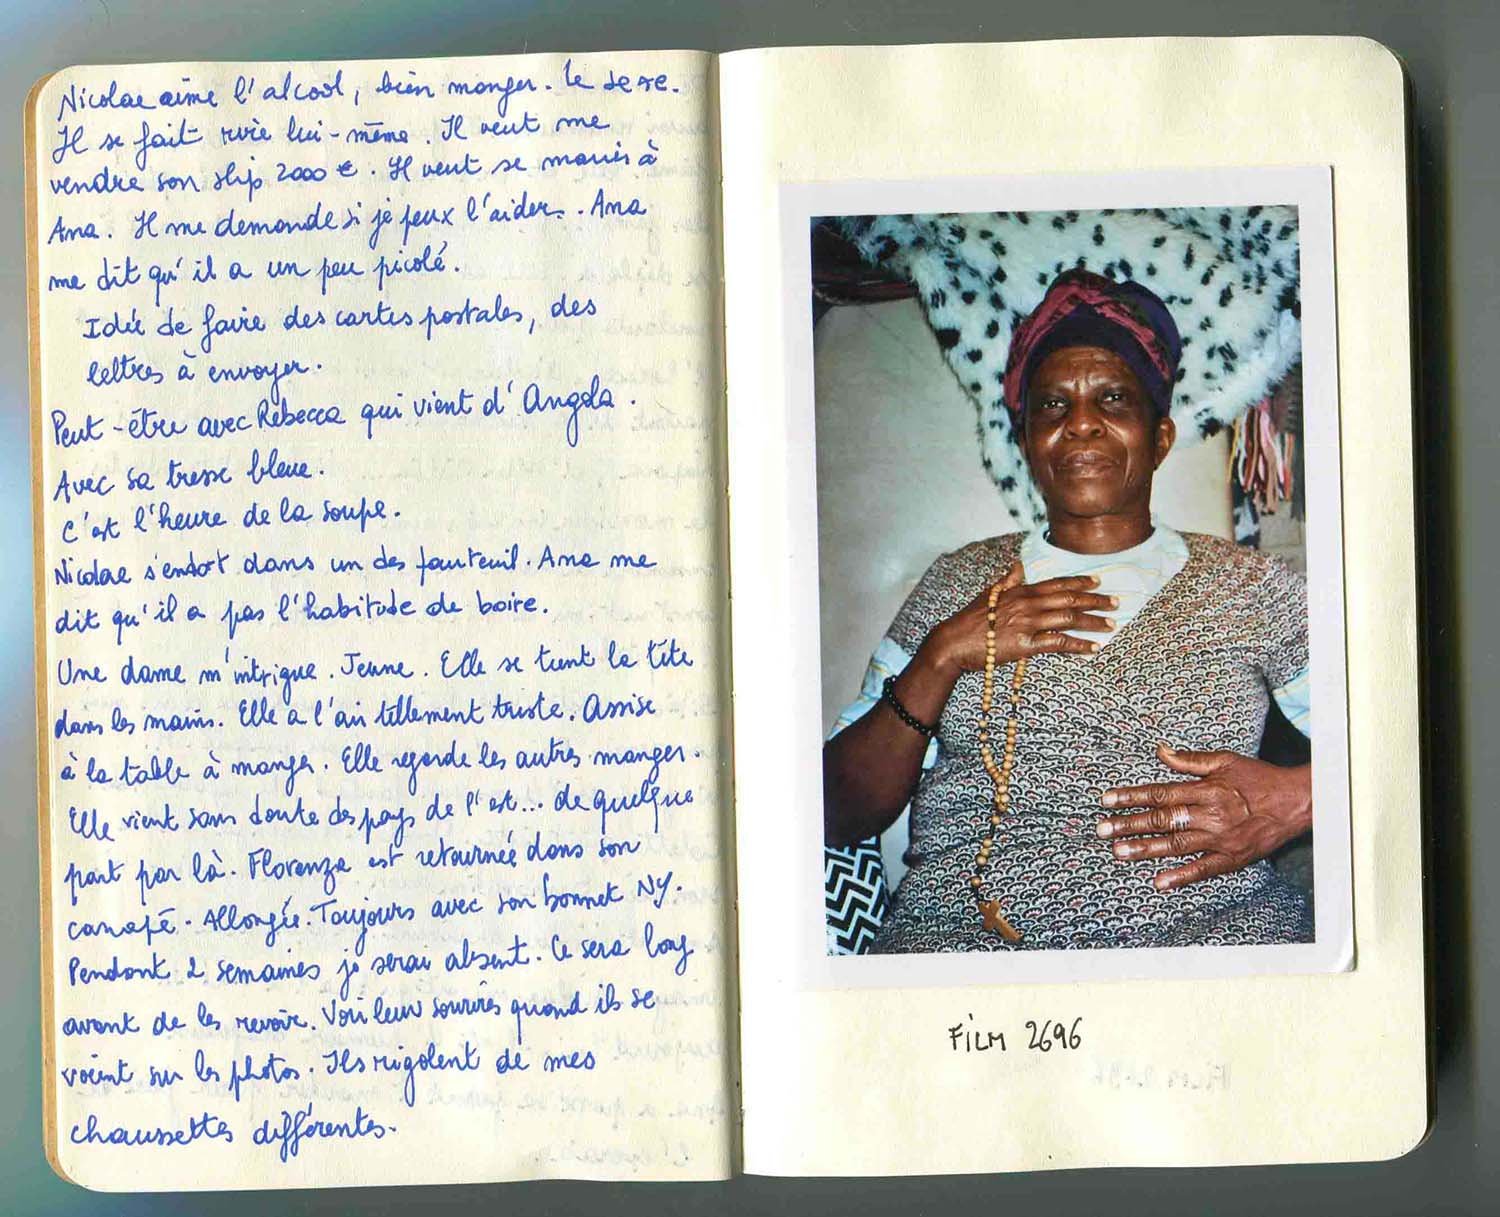 Nicolae aime l'alcool, bien manger. Le sexe.
Il se fait rire lui-même. Il veut me
vendre son slip 2000 €. Il veut se marier à
Ana. Il me demande si je peux l'aider. Ana
me dit qu'il a un peu picolé.
Idée de faire des cartes postales, des
lettres à envoyer.
Peut-être avec Rebecca qui vient d'Angola.
Avec sa tresse bleue.
C'est l'heure de la soupe.
Nicolae s'endort dans un des fauteuil. Ana me
dit qu'il a pas l'habitude de boire.
Une dame m'intrigue. Jeune. Elle se tient la tête
dans les mains. Elle a l'air tellement triste. Assise
à la table à manger. Elle regarde les autres manger.
Elle vient sans doute des pays de l'est... de quelque
part par là. Florenza est retournée dans son
canapé. Allongée. Toujours avec son bonnet NY.
Pendant 2 semaines je serai absent. Ce sera long
avant de les revoir. Voir leur sourires quand ils se
voient sur les photos. Ils rigolent de mes
chaussettes différentes.
FILM 2696